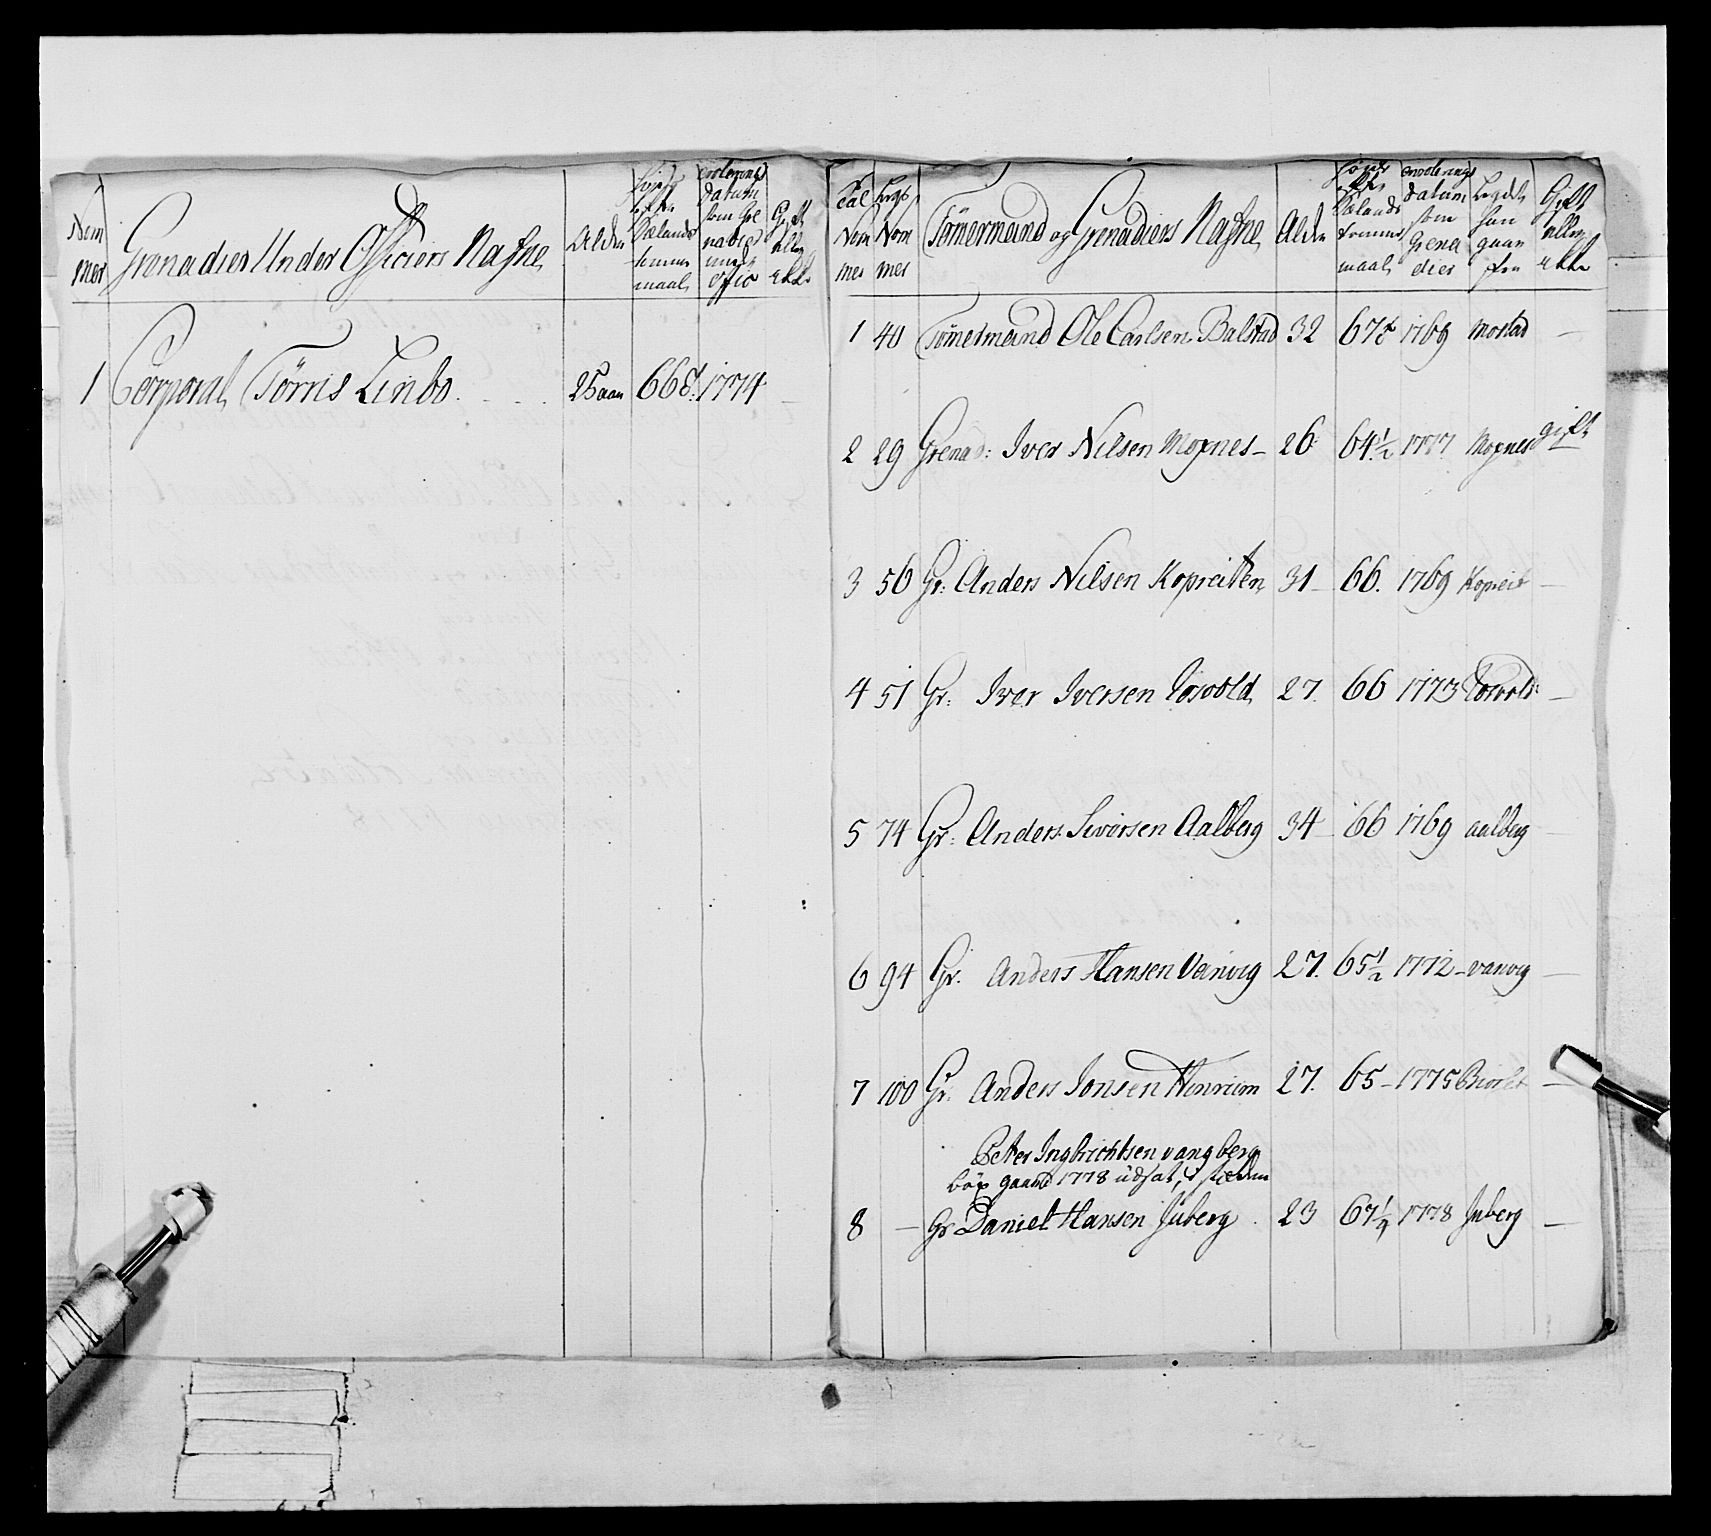 Nom
mer
Grenadier Under Officiers Nafne
Alder
Sælands
tomme
maal
Datum
som Gre
nadier
under
offic
Gift
eller
ikke
1 Corporal Törris Linbo 25 aar 66 1774
Tal
Nom
mer
Lægs
Nom
mer
Tömermænd og Grenadiers Nafne
Alder
Sælands
tomme
maal
Datum
som
Grena
dier
Legdet
han
gaar
fra
Gift
eller
ikke
1 40 Tömermand Ole Carlsen Balstad 32 67 1769 Mostad —
2 29 Grenad: Iver Nilsen Moxnes — 26 64 1/2 1777 Moxnes gift
3 56 Gr: Anders Nilsen Kopreiten 31 — 66. 1769 Kopreit —
4 51 Gr: Iver Iversen 27 66 1773 —
5 74 Gr: Anders Siversen Aalberg 34 66 1769 aalberg —
6 94 Gr. Anders Hansen Vanvig 27. 65 1/2 1772 — vanvig —
7 100 Gr. Anders Jonsen Henriem 27. 65 — 1775 —
Peter Ingbrichtsen vangberg
gaard 1778 udsat, i steden
8 — Gr Daniel Hansen Juberg 23 67 1/4 1778 Juberg —